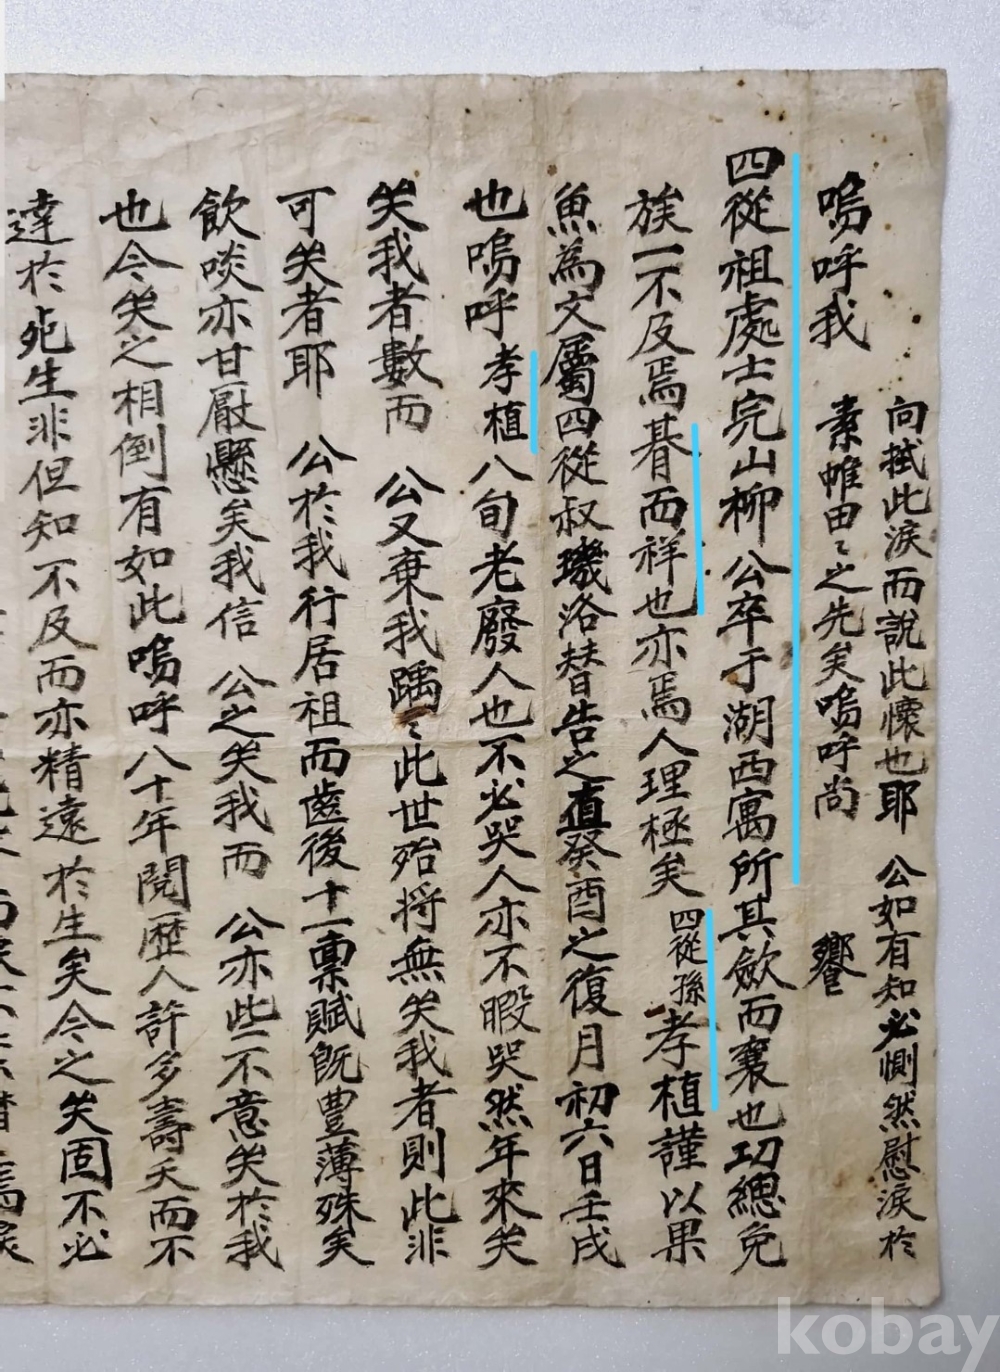 向拭此淚而說此懷也耶 公如有知必惻然慰淚於
嗚呼我 素帷由〻之先矣嗚呼尚 饗
四從祖處士完山柳公卒于湖西寓所其斂而襄也功緦免
族一不及焉朞而祥也亦焉人理極矣 四從孫孝植謹以果
魚為文屬四從叔璣洛替告之直癸酉之復月初六日壬戌
也嗚呼孝植八旬老廢人也不必哭人亦不暇哭然年來哭
我者數而 公又棄我踽〻此世殆將無哭我者則此非
可哭者耶 公於我行居祖而齒後十一稟賦既豊薄殊矣
飲啖亦甘厭懸矣我信 公之哭我而 公亦些不意哭於我
也今哭之相倒有如此嗚呼八十年閱歷人許多壽夭而不
達於死生非但知不及而亦精遠於生矣今之哭固不必
kobay